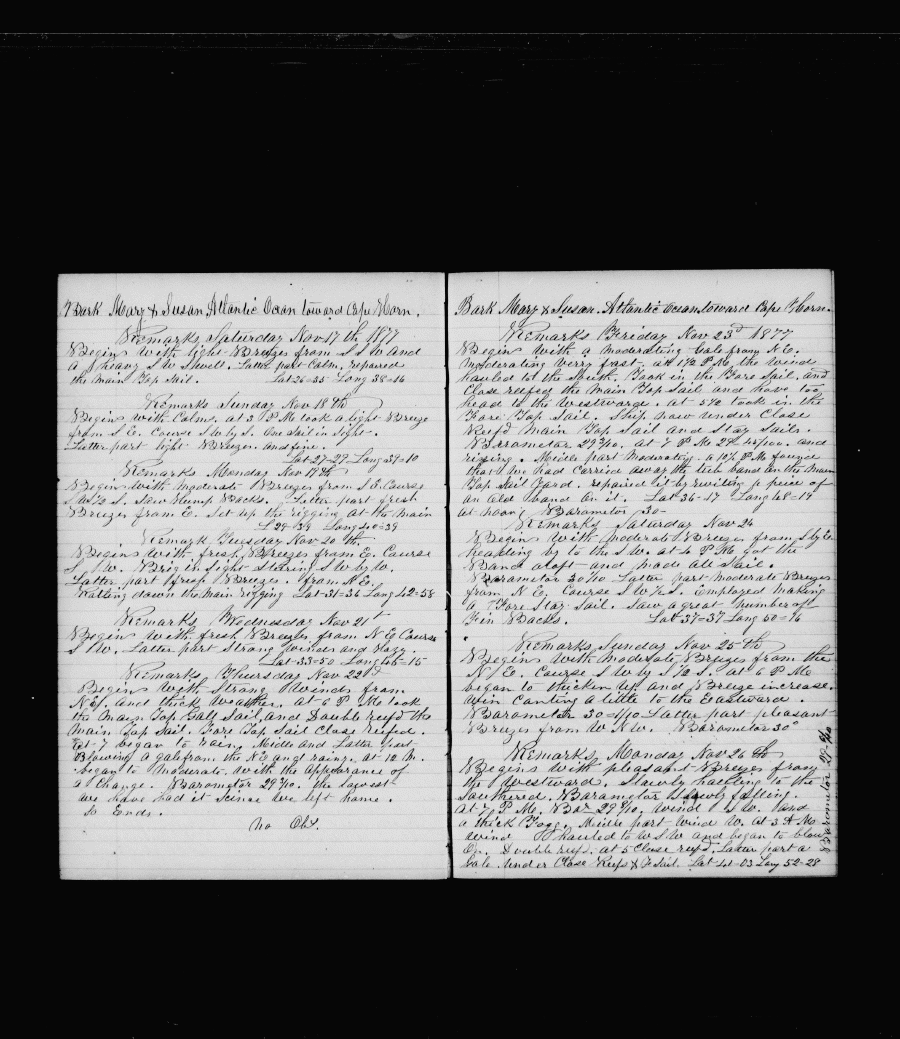 Bark Mary & Susan Atlantic Ocean toward Cape Horn.
Remarks Saturday Nov 17th 1877
Begins with light Breezes from S S W and
a heavy S W Swell. Latter part Calm, repaired
the Main Top Sail. Lat 26=35 Long 38=16
Remarks Sunday Nov 18th
Begins with Calms. at 3 P Mo took a light Breeze
from S E. Course S W by S. One Sail in Sight.
Latter part light Breezes. and fine.
Lat 27=29 Long 39=10
Remarks Monday Nov 19th
Begins with moderate Breezes from S E Course
S W 1/2 S. Saw Hump Backs. Latter part fresh
Breezes from E. Set up the rigging at the Main
L 29=39 Long 40=39
Remark Tuesday Nov 20th
Begins with fresh Breezes from E. Course
S W. Brig in Sight Stearing S W by W.
Latter part fresh Breezes. from N E.
Ratling down the Main Rigging Lat 31=36 Long 42=58
Remarks Wednesday Nov 21
Begins with fresh Breezes from N E Course
S W. Latter part Strong Winds and Hazy.
Lat 33=50 Long 45=15
Remarks Thursday Nov 22d
Begins with Strong Winds from
N E. and thick Weather. at 6 P M took
the Main Top Gall Sail, and Double reefd the
Main Top Sail. Fore Top Sail Close reifed.
at 7 began to rain. Middle and Latter part
Blowing a gale from the N E and rain. at 10 M.
began to Moderate, with the appearance of
a Change. Barometer 29 /10. the lowest
we have had it Sence we left home.
So Ends.
No Obs.
Bark Mary & Susan. Atlantic Ocean toward Cape Horn.
Remarks Friday Nov 23d 1877
Begins with a moderating Gale from N E.
Moderating verry fast. at 1 1/2 P Mo the wind
hauled to the South. Took in the Fore Sail, and
Close reefed the Main Top Sail and hove too
head to the Westward. at 5 1/2 took in the
Fore Top Sail. Ship now under Close
Reefd Main Top Sail and Stay Sails.
Barometer 29 /10. at 7 P Mo 29 and
rising. Middle part Moderating. a 10 P Mo found
that we had Carried away the on the Main
Top Sail Yard. repaired it by a peice of
an old band on it. Lat 36=17 Long 48=19
at noon; Barometer 30
Remarks Saturday Nov 24
Begins with moderate Breezes from S by E
heading by to the S W. at 4 P Mo got the
Band aloft and made all Sail.
Barometer 30 /10 Latter part moderate Breezes
from N E. Course S W 1/2 S. Employed making
a Fore Stay Sail. Saw a great number of
Fin Backs. Lat 37=37 Long 50=16
Remarks Sunday Nov 25th
Begins with moderate Breezes from the
N E. Course S W by S 1/2 S. at 6 P Mo
began to thicken up and Breeze increase.
Win Canting a little to the Eastward.
Barometer 30 = /10 Latter part pleasant
Breezes from W N W. Barometer 30
Remarks Monday Nov 26th
Begins with pleasant Breezes from
the Westward. Slowly hauling to the
Southered. Barameter slowly falling.
at 7 P Mo Bar 29 /10. wind S W. and
a thick Fogg. Middle part Wind W. at 3 A Mo
wind hauled to W S W and began to blow
Up. Double reefd. at 5 Close reefd. Latter part a
Gale under Close Reefs & F Sail. Lat 41=03 Long 52=28
Barometer 29 /10